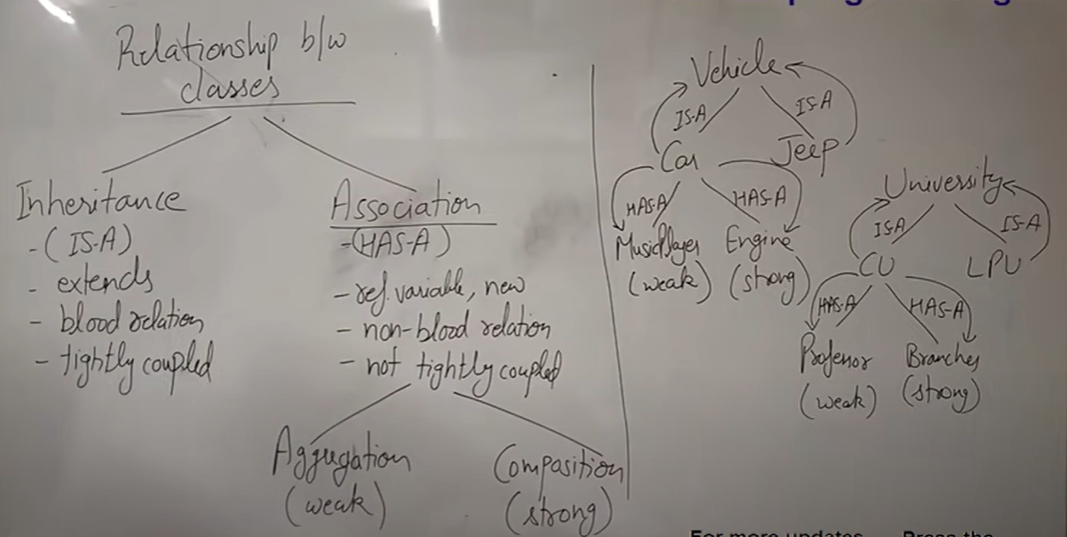 Relationship b/w
classes
Inheritance
- (IS-A)
- extends
- blood relation
- tightly coupled
Association
- (HAS-A)
- ref. variable, new
- non-blood relation
- not tightly coupled
Aggregation
(weak)
Composition
(strong)
Vehicle
IS-A
IS-A
Car
Jeep
HAS-A
HAS-A
MusicPlayer
(weak)
Engine
(strong)
University
IS-A
IS-A
CU
LPU
HAS-A
HAS-A
Professor
(weak)
Branches
(strong)
For more updates
Press the